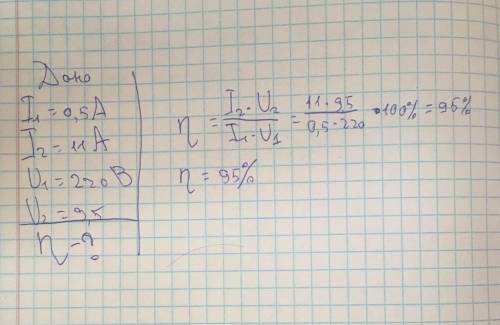 Дано
I₁ = 0,5A
I₂ = 11A
U₁ = 220В
U₂ = 9,5
η - ?
η = I₂·U₂ / I₁·U₁ = 11·95 / 0,5·220 · 100% = 95%
η = 95%